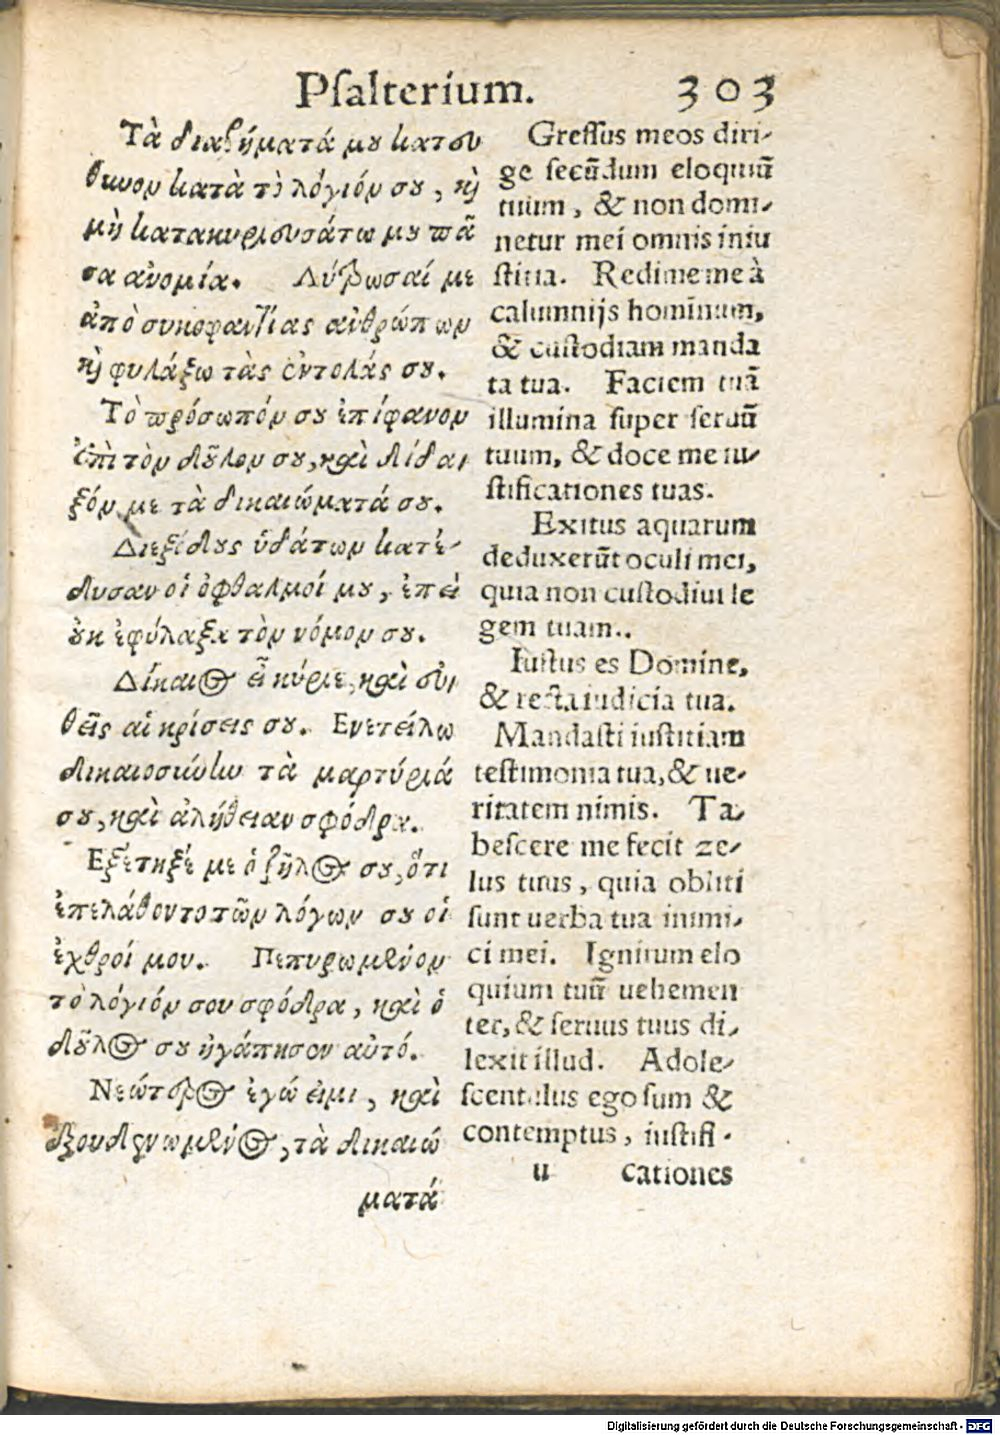 Psalterium. 303
Τὰ διαβήματά μου κατευ
θυνον κατὰ τὸ λόγιόν σου, καὶ
μὴ κατακυριευσάτω μου πᾶ
σα ἀνομία. Λύτρωσαί με
ἀπὸ συκοφαντίας ἀνθρώπων
καὶ φυλάξω τὰς ἐντολάς σου.
Τὸ πρόσωπόν σου ἐπίφανον
ἐπὶ τὸν δοῦλον σου, καὶ δίδα
ξόν με τὰ δικαιώματά σου.
Διεξόδους ὑδάτων κατέ-
δυσαν οἱ ὀφθαλμοί μου, ἐπεὶ
οὐκ ἐφύλαξα τὸν νόμον σου.
Δίκαιος εἶ κύριε, καὶ εὐ
θεῖς αἱ κρίσεις σου. Ενετείλω
δικαιοσύνην τὰ μαρτύριά
σου, καὶ ἀλήθειαν σφόδρα.
Εξέτηξέ με ὁ ζῆλος σου, ὅτι
ἐπελάθοντο τῶν λόγων σου οἱ
ἐχθροί μου. Πεπυρωμένον
τὸ λόγιόν σου σφόδρα, καὶ ὁ
δοῦλος σου ἠγάπησεν αὐτό.
Νεώτερος ἐγώ εἰμι, καὶ
ἐξουδενωμένος, τὰ δικαιώ
ματά
Gressus meos diri-
ge secũdum eloquiũ
tuum, & non domi-
netur mei omnis iniu
stitia. Redime me à
calumnijs hominum,
& custodiam manda
ta tua. Faciem tuã
illumina super seruũ
tuum, & doce me iu-
stificationes tuas.
Exitus aquarum
deduxerũt oculi mei,
quia non custodiui le
gem tuam..
Iustus es Domine,
& recta iudicia tua.
Mandasti iustitiam
testimonia tua, & ue-
ritatem nimis. Ta-
bescere me fecit ze-
lus tuus, quia obliti
sunt uerba tua inimi-
ci mei. Ignitum elo
quium tuũ uehemen
ter, & seruus tuus di-
lexit illud. Adole-
scentulus ego sum &
contemptus, iustifi-
u cationes
Digitalisierung gefördert durch die Deutsche Forschungsgemeinschaft - DFG